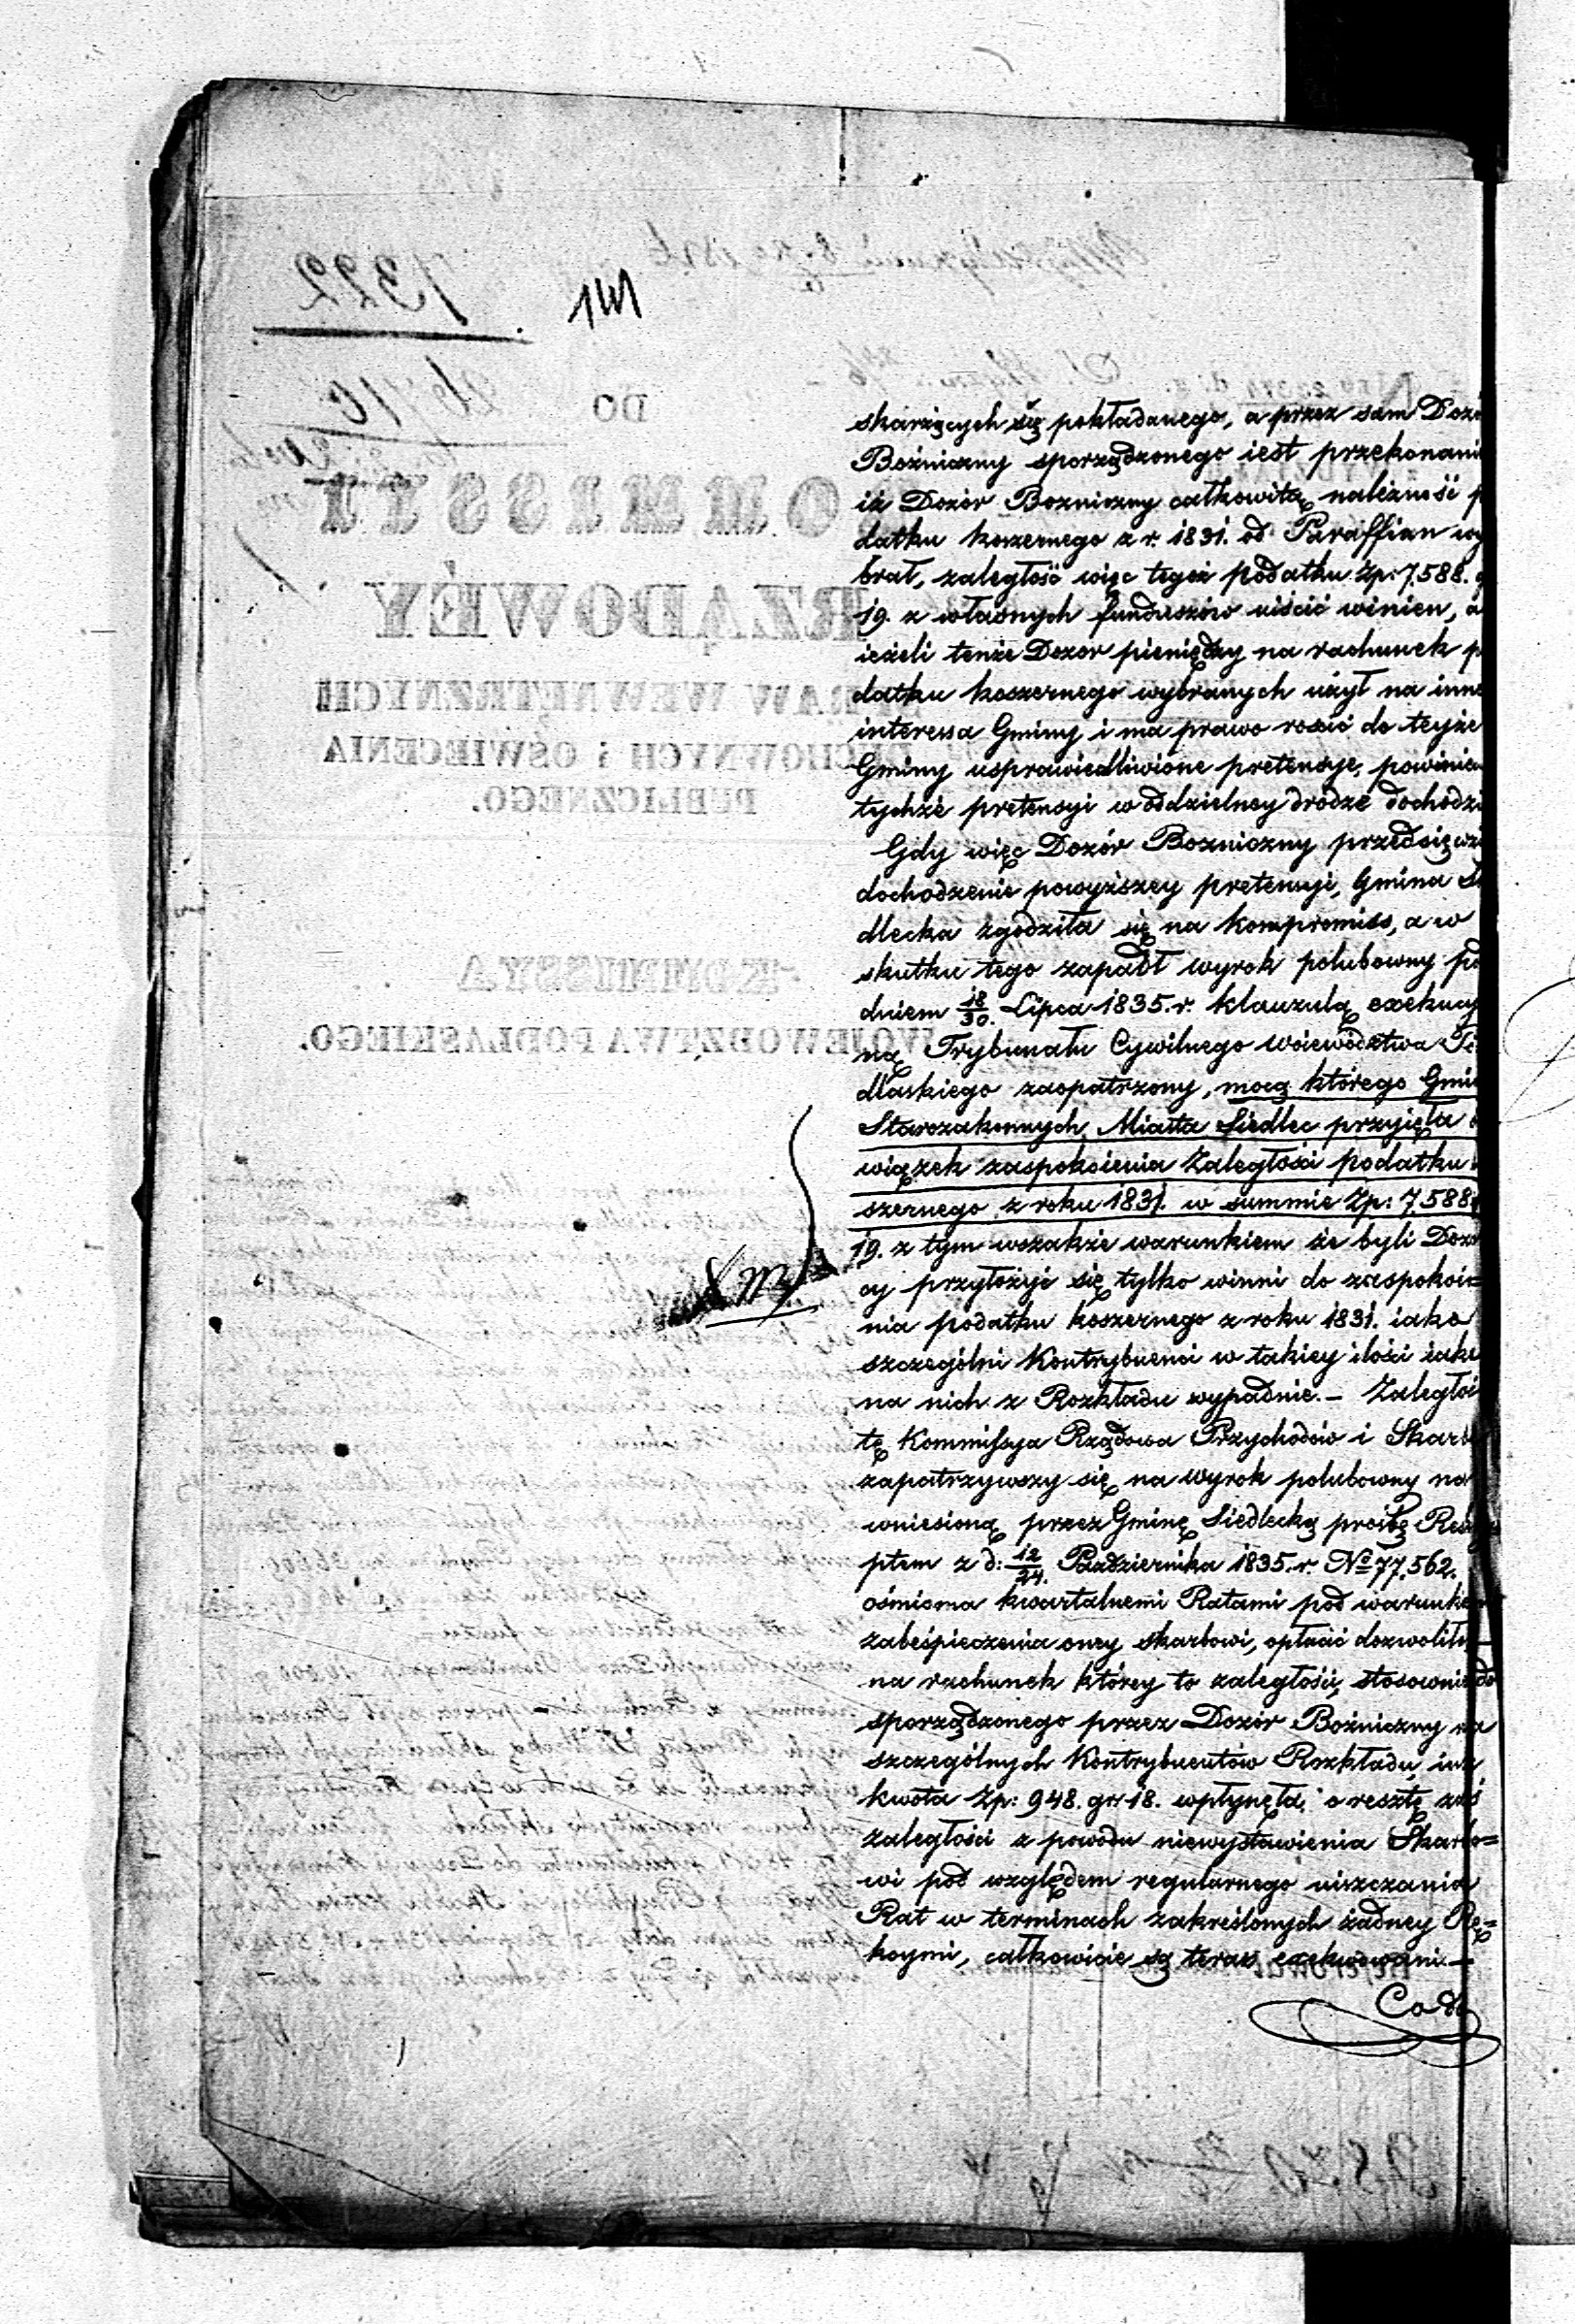 141
skarżących się pokładanego, a przez sam Dozó
Bożniczny sporządzonego iest przekonani
iż Dozór Bożniczny całkowitą należność p
datku koszernego z r. 1831. od Paraffian wy
brał, zaległość więc tegoż podatku Zp: 7,588. g
19. z własnych funduszów uiścić winien, a
ieżeli tenże Dozor pieniędzy na rachunek p
datku koszernego wybranych użył na inne
interessa Gminy i ma prawo rościć do teyże
Gminy usprawiedliwione pretensye, powinien
tychże pretensyi w oddzielney drodze dochodzi
Gdy więc Dozór Bożniczny przedsięwzi
dochodzenie powyższey pretensyi, Gmina Si
dlecka zgodziła się na kompromiss, a w
skutku tego zapadł wyrok polubowny po
dniem 18/30. Lipca 1835. r. klauzulą exekucy
ną Trybunału Cywilnego woiewództwa Po
dlaskiego zaopatrzony, mocą którego Gmi
Starozakonnych Miasta Siedlec przyięła o
wiązek zaspokoienia Zaległości podatku
szernego z roku 1831. w summie Zp: 7,588
19. z tym wszakże warunkiem że byli Dozo
cy przyłożyć się tylko winni do zaspokoie=
nia podatku koszernego z roku 1831. iako
szczególni Kontrybuenci w takiey ilości iaka
na nich z Rozkładu wypadnie. – Zaległoś
tę Kommissya Rządowa Przychodów i Skarb
zapatrzywszy się na wyrok polubowny na
wniesioną przez Gminę Siedlecką proźbę Res
ptem z d: 12/24. Października 1835. r. No 77,562.
ośmioma kwartalnemi Ratami pod warunkiem
zabeśpieczenia oney skarbowi, opłacić dozwoliła
na rachunek którey to zaległości, stosownie do
sporządzonego przez Dozór Bożniczny na
szczególnych Kontrybuentów Rozkładu, iuż
kwota Zp: 948. gr 18. wpłynęła, o resztę zaś
zaległości z powodu niewystawienia Skarbo=
wi pod względem regularnego uiszczania
Rat w terminach zakreślonych żadney Rę=
koymi, całkowicie są teraz exekwowani. –